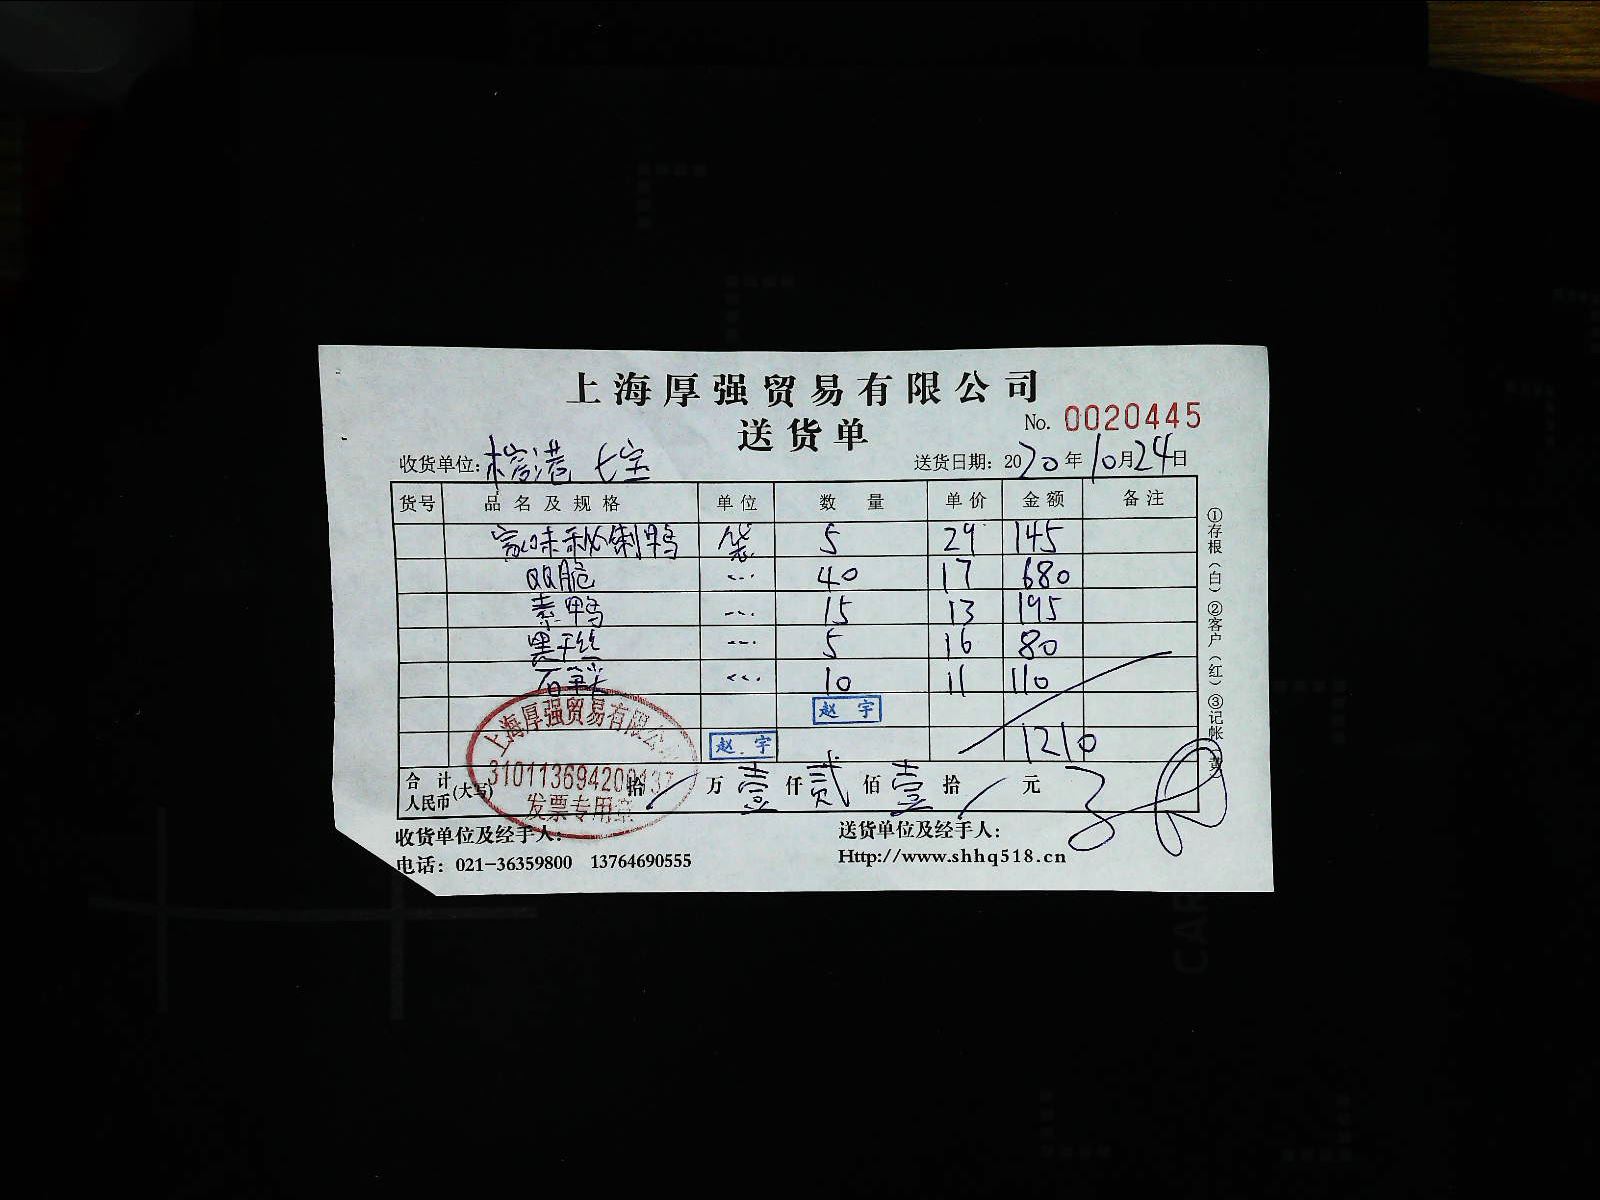 上海厚强贸易有限公司
送货单
No. 0020445
收货单位: 榕港 七宝
送货日期: 2020年10月24日
货号 品名及规格 单位 数量 单价 金额 备注
家味秘制鸭 袋 5 29 145
QQ脆 … 40 17 680
素鸭 … 15 13 195
黑干丝 … 5 16 80
石笋 … 10 11 110
赵宇
赵宇 1210
合计人民币(大写) 拾 / 万 壹 仟 贰 佰 壹 拾 / 元
上海厚强贸易有限公司
310113694200137
发票专用章
收货单位及经手人:
送货单位及经手人:
电话: 021-36359800 13764690555
Http://www.shhq518.cn
①存根(白)②客户(红)③记帐(黄)